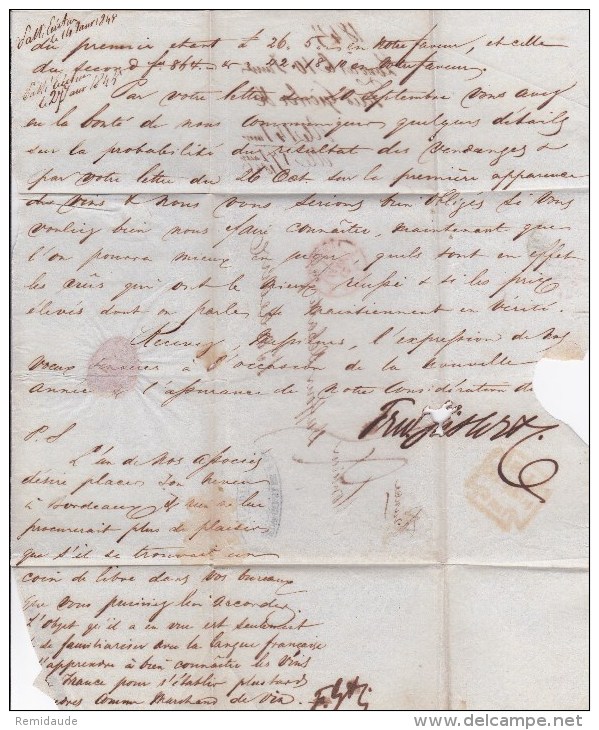 le 14 Janr 1848
du premier étant £ 26. 5. en notre faveur, et celle
du second
le 27 Janr
Par votre lettre Septembre vous aviez
eu la bonté de nous communiquer quelques détails
sur la probabilité du résultat des vendanges &
par votre lettre du 26 Oct. sur la première apparence
des vins & nous vous serions bien obligés si vous
vouliez bien nous faire connaître, maintenant que
l'on pourra mieux en juger, quels sont en effet
les crûs qui ont le mieux reussi & si les prix
élevés dont on parle se maintiennent en vérité.
Recevez, Messieurs, l'expression de nos
voeux sincères à l'occasion de la nouvelle
année & l'assurance de notre considération
P.S
L'un de nos associés
désire placer son neveu
à Bordeaux & rien ne lui
procurerait plus de plaisir
que s'il se trouvait un
coin de libre dans vos bureaux
que vous puissiez lui accorder
L'objet qu'il a en vue est seulement
de familiariser avec la langue française
d'apprendre à bien connaître les Vins
France pour s'établir plus tard
comme Marchand de Vin.
Remidaude
www.delcampe.net